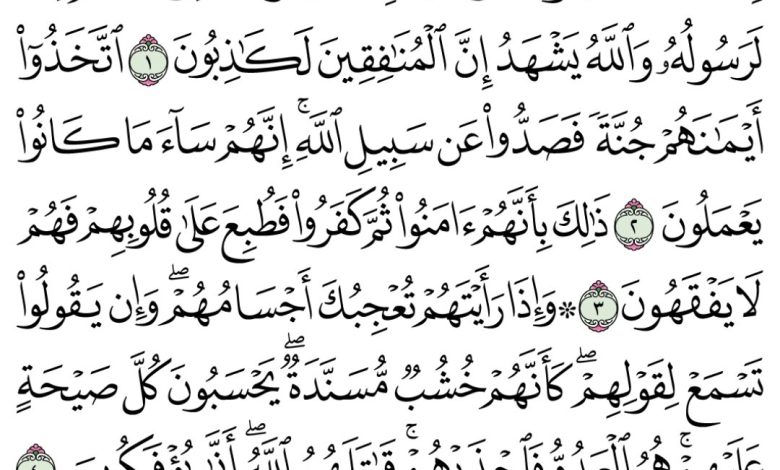 لَرَسُولُهُۥ وَٱللَّهُ يَشۡهَدُ إِنَّ ٱلۡمُنَٰفِقِينَ لَكَٰذِبُونَ ١ ٱتَّخَذُوٓاْ
أَيۡمَٰنَهُمۡ جُنَّةٗ فَصَدُّواْ عَن سَبِيلِ ٱللَّهِۚ إِنَّهُمۡ سَآءَ مَا كَانُواْ
يَعۡمَلُونَ ٢ ذَٰلِكَ بِأَنَّهُمۡ ءَامَنُواْ ثُمَّ كَفَرُواْ فَطُبِعَ عَلَىٰ قُلُوبِهِمۡ فَهُمۡ
لَا يَفۡقَهُونَ ٣ ۞ وَإِذَا رَأَيۡتَهُمۡ تُعۡجِبُكَ أَجۡسَامُهُمۡۖ وَإِن يَقُولُواْ
تَسۡمَعۡ لِقَوۡلِهِمۡۖ كَأَنَّهُمۡ خُشُبٞ مُّسَنَّدَةٞۖ يَحۡسَبُونَ كُلَّ صَيۡحَةٍ
عَلَيۡهِمۡۚ هُمُ ٱلۡعَدُوُّ فَٱحۡذَرۡهُمۡۚ قَٰتَلَهُمُ ٱللَّهُۖ أَنَّىٰ يُؤۡفَكُونَ ٤